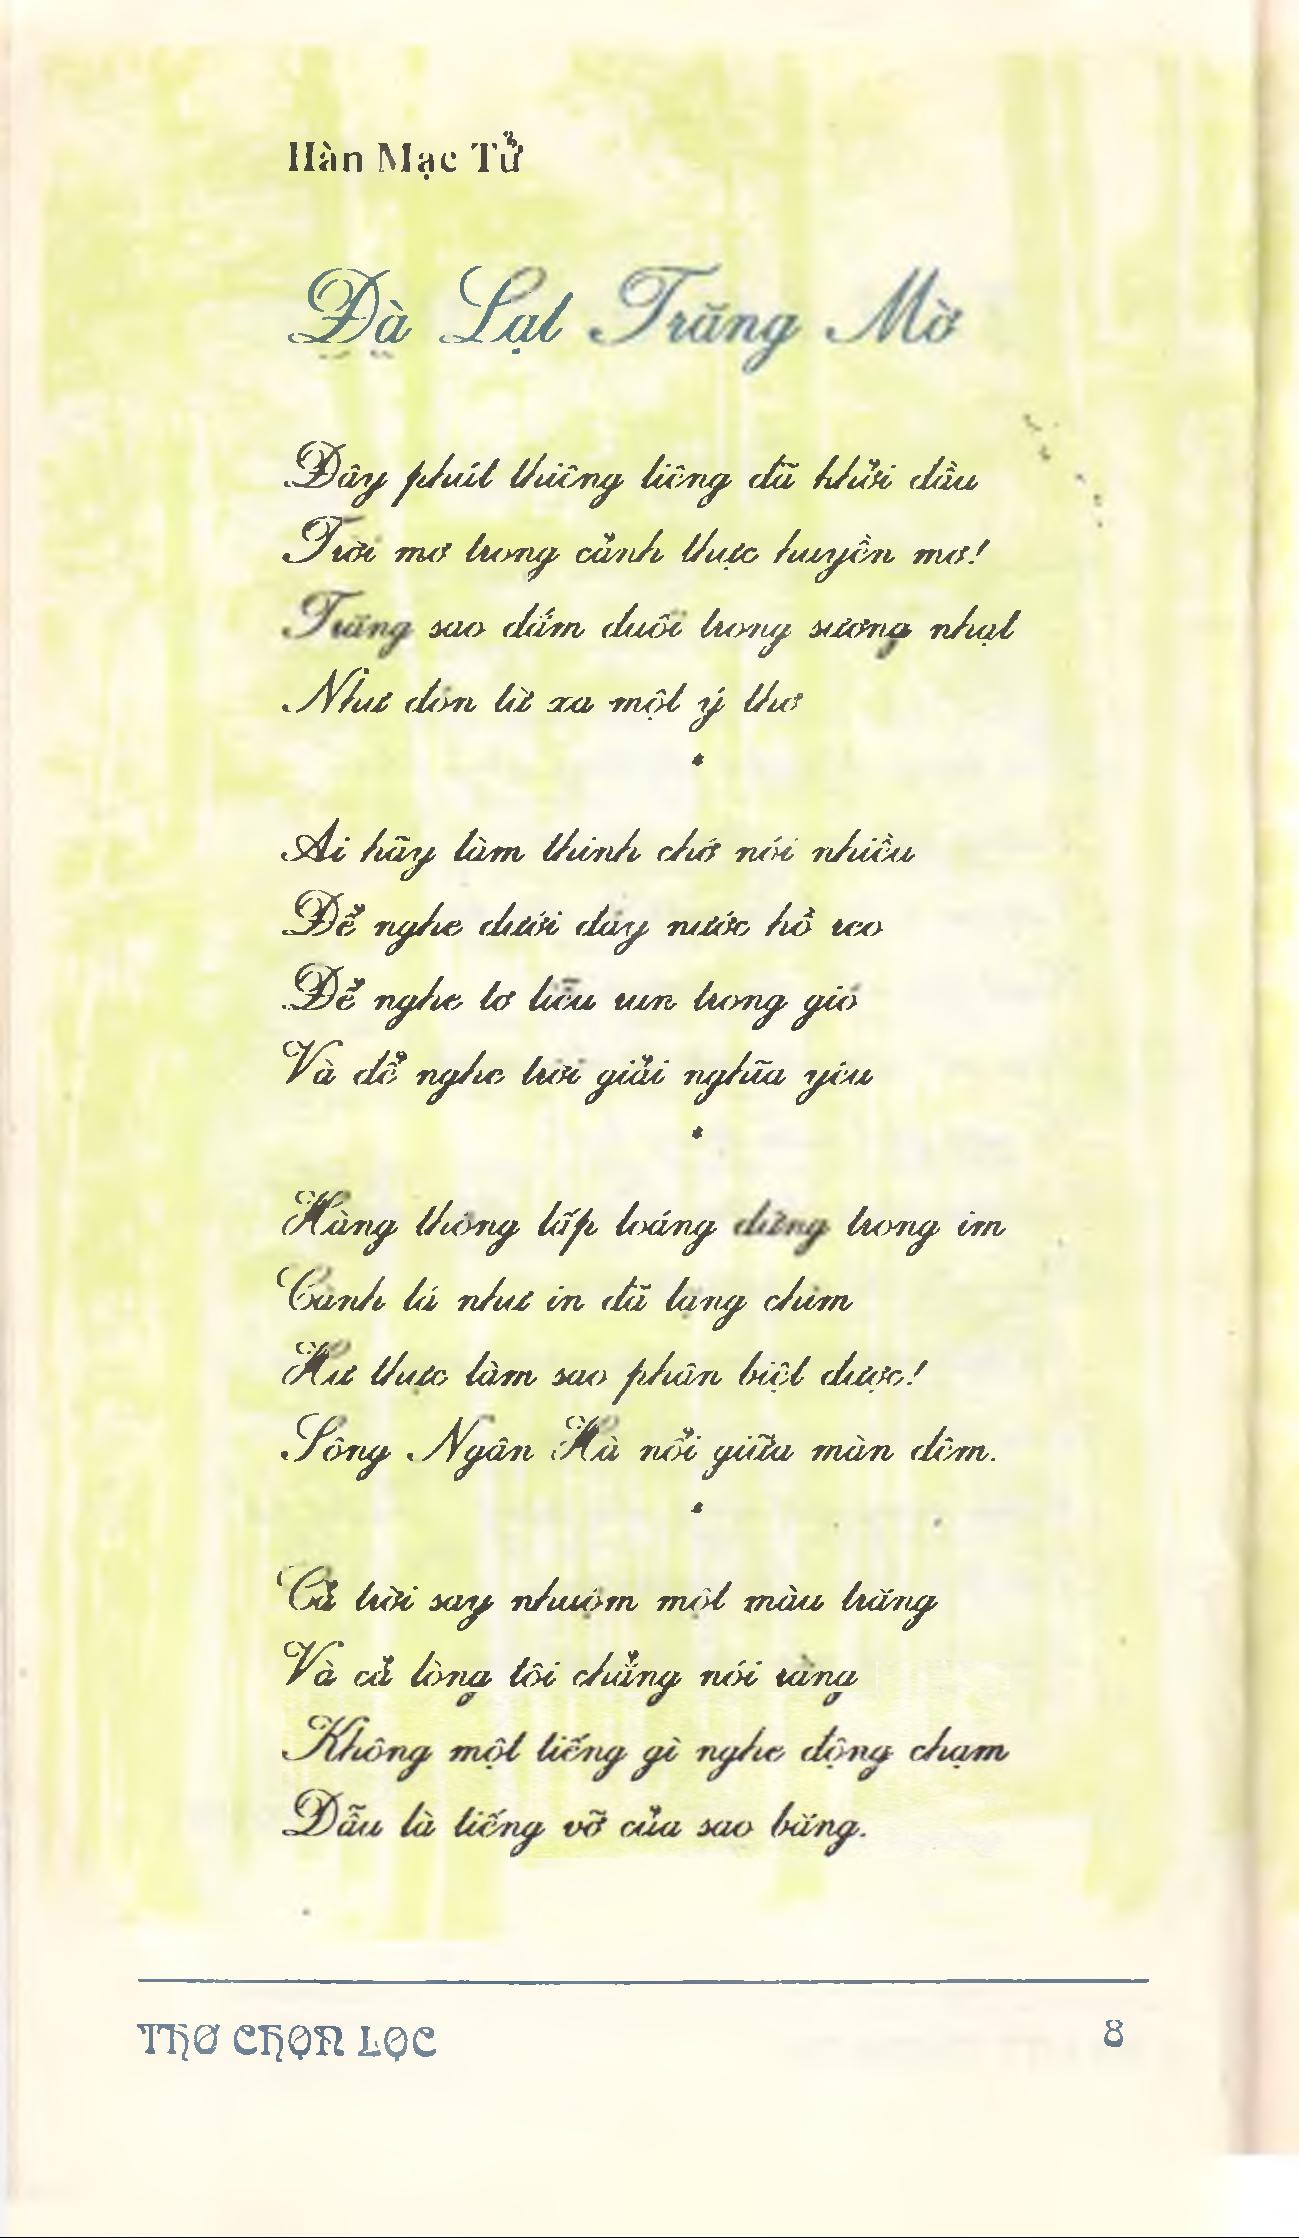 Hàn Mạc Tử
Đà Lạt Trăng Mờ
Đây phút thiêng liêng đã khởi đầu
Trời mơ trong cảnh thực huyền mơ!
Trăng sao đắm đuối trong sương nhạt
Như đón từ xa một ý thơ
*
Ai hãy làm thinh chớ nói nhiều
Để nghe dưới đáy nước hồ reo
Để nghe tơ liễu run trong gió
Và để nghe trời giải nghĩa yêu
*
Hàng thông lấp loáng đứng trong im
Cành lá như in đã lặng chìm
Hư thực làm sao phân biệt được!
Sông Ngân Hà nổi giữa màn đêm.
*
Cả trời say nhuộm một màu trăng
Và cả lòng tôi chẳng nói rằng
Không một tiếng gì nghe động chạm
Dẫu là tiếng vỡ của sao băng.
THƠ CHỌN LỌC
8